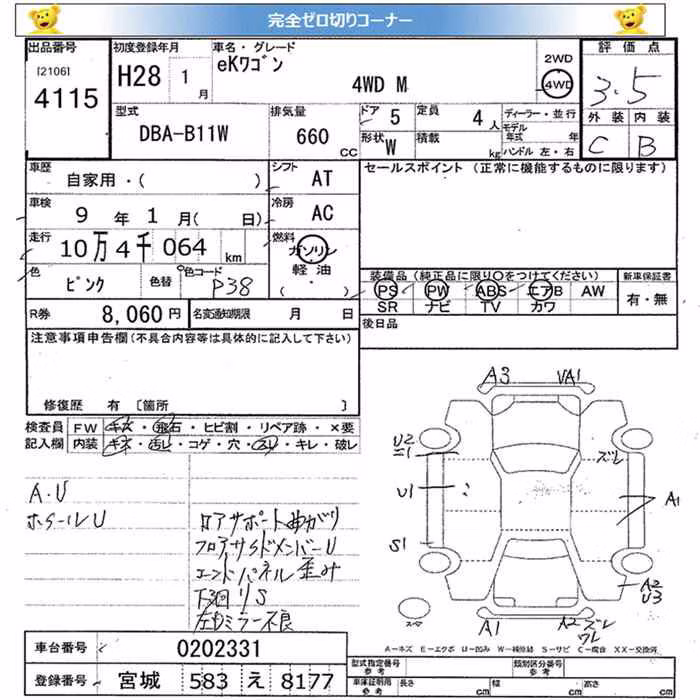 完全ゼロ切りコーナー
出品番号 初度登録年月 車名・グレード 評価点
[2106] 4115 H28 1月 eKワゴン 4WD M 2WD 4WD 3.5
型式 排気量 ドア 5 定員 4人 ディーラー・並行 外装 内装
DBA-B11W 660 CC 形状 W 積載 kg モデル年式 年 C B
ハンドル 左・右
車歴 自家用・( ) シフト AT セールスポイント (正常に機能するものに限ります)
車検 9年1月( 日) 冷房 AC
走行 10万4千064 km 燃料 ガソリン
軽油
・( )
色 ピンク 色替 色コード P38 装備品 (純正品に限り○をつけてください) 新車保証書
PS PW ABS エアB AW 有・無
SR ナビ TV カワ
R券 8,060円 名変通知期限 月 日 後日品
注意事項申告欄 (不具合内容等は具体的に記入して下さい)
修復歴 有 〔箇所 〕
検査員 FW キズ・飛石・ヒビ割・リペア跡・×要
記入欄 内装 キズ・汚レ・コゲ・穴・スレ・キレ・破レ
A.U
ホイールU
ロアサポート曲がり
フロアサイドメンバーU
エンドパネル歪み
下回りS
左ミラー不良
A3 VA1
U2
ズレ
U1 A1
S1
A2
U3
A1 A2 ズレ
ワレ
スペア
A=キズ E=エクボ U=凹み W=補修跡 S=サビ C=腐食 XX=交換済
車台番号 0202331
登録番号 宮城 583 え 8177
型式指定番号 参考 類別区分番号 参考
車庫証明用 参考 長さ cm 幅 cm 高さ cm